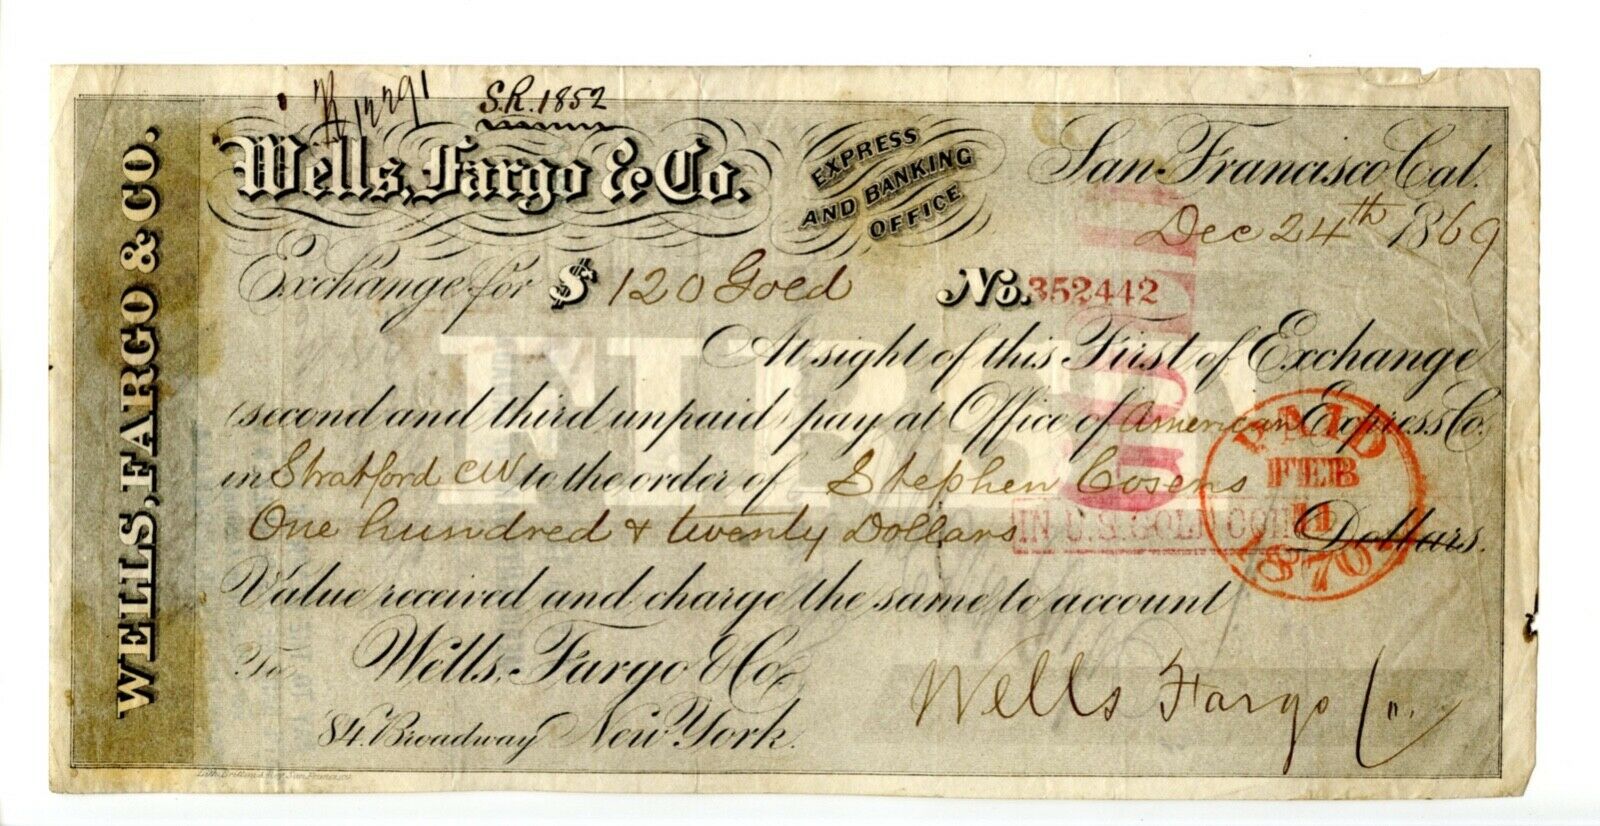 H 17791
S.R. 1852
WELLS, FARGO & CO.
Wells, Fargo & Co.
EXPRESS
AND BANKING
OFFICE
San Francisco Cal.
Dec 24th 1869
Exchange for $ 120 Gold No. 352442
FIRST
At sight of this First of Exchange
(second and third unpaid) pay at Office of American Express Co.
in Stratford CW to the order of Stephen Cosens
One hundred & twenty Dollars Dollars.
IN U.S. GOLD COIN
PAID
FEB
11
1870
Value received and charge the same to account
To Wells, Fargo & Co.
84 Broadway New York.
Wells Fargo Co.
Lith. Britton & Rey San Francisco